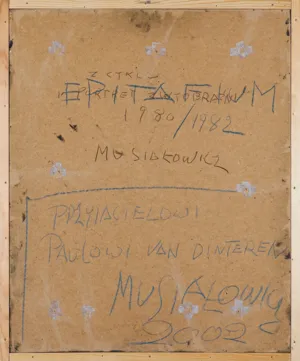 Z CYKLU
EPITAFIUM
1980/1982
MUSIAŁOWICZ
PRZYIACIELOWI
PAULOWI VAN DINTEREN
MUSIAŁOWICZ
2002